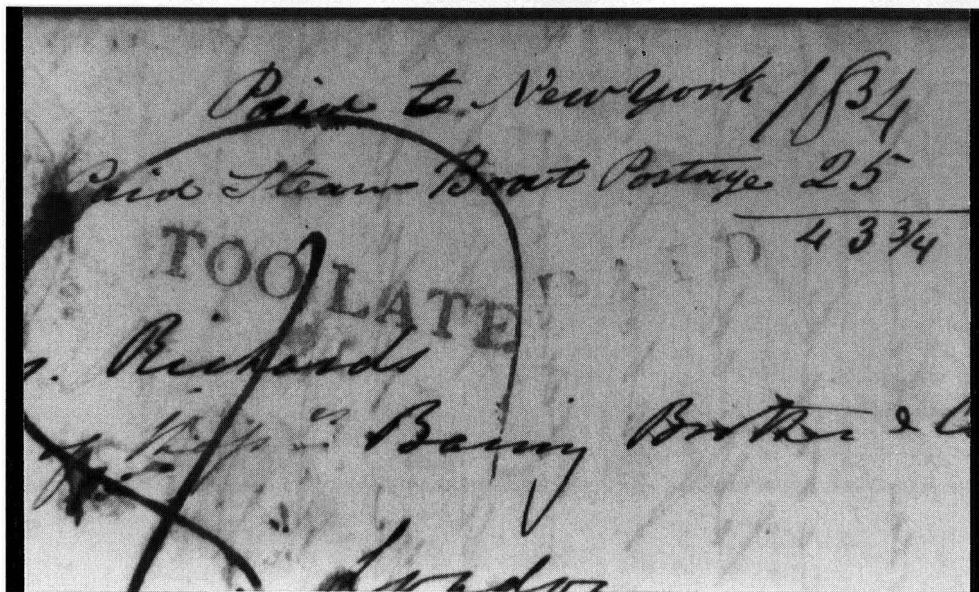 Paid to New York 18 3/4
Paid Steam Boat Postage 25
43 3/4
TOO LATE PAID
Richards
Baring Brother & C
London